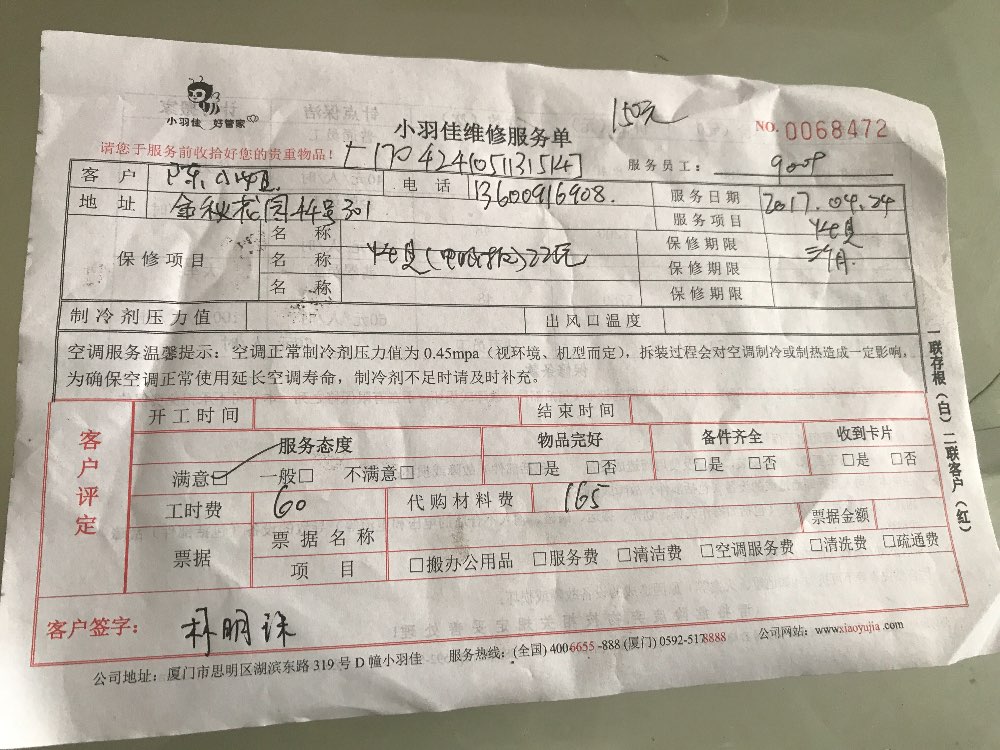 小羽佳 好管家
小羽佳维修服务单
150元
NO. 0068472
请您于服务前收拾好您的贵重物品!
170424105113154
服务员工: 9008
客户 陈小姐 电话 13600916908. 服务日期 2017.04.24
地址 金秋花园44号301 服务项目
保修项目
名称 保修期限 三个月
名称 220元 保修期限
名称 保修期限
制冷剂压力值 出风口温度
空调服务温馨提示:空调正常制冷剂压力值为 0.45mpa(视环境、机型而定),拆装过程会对空调制冷或制热造成一定影响,
为确保空调正常使用延长空调寿命,制冷剂不足时请及时补充。
客户评定
开工时间 结束时间
服务态度 物品完好 备件齐全 收到卡片
满意□ 一般□ 不满意□ □是 □否 □是 □否 □是 □否
工时费 60 代购材料费 165
票据 票据名称 票据金额
项目 □搬办公用品 □服务费 □清洁费 □空调服务费 □清洗费 □疏通费
客户签字: 林明珠
公司地址:厦门市思明区湖滨东路 319 号 D 幢小羽佳 服务热线:(全国) 4006655-888 (厦门) 0592-5178888 公司网站:www.xiaoyujia.com
一联存根(白)二联客户(红)